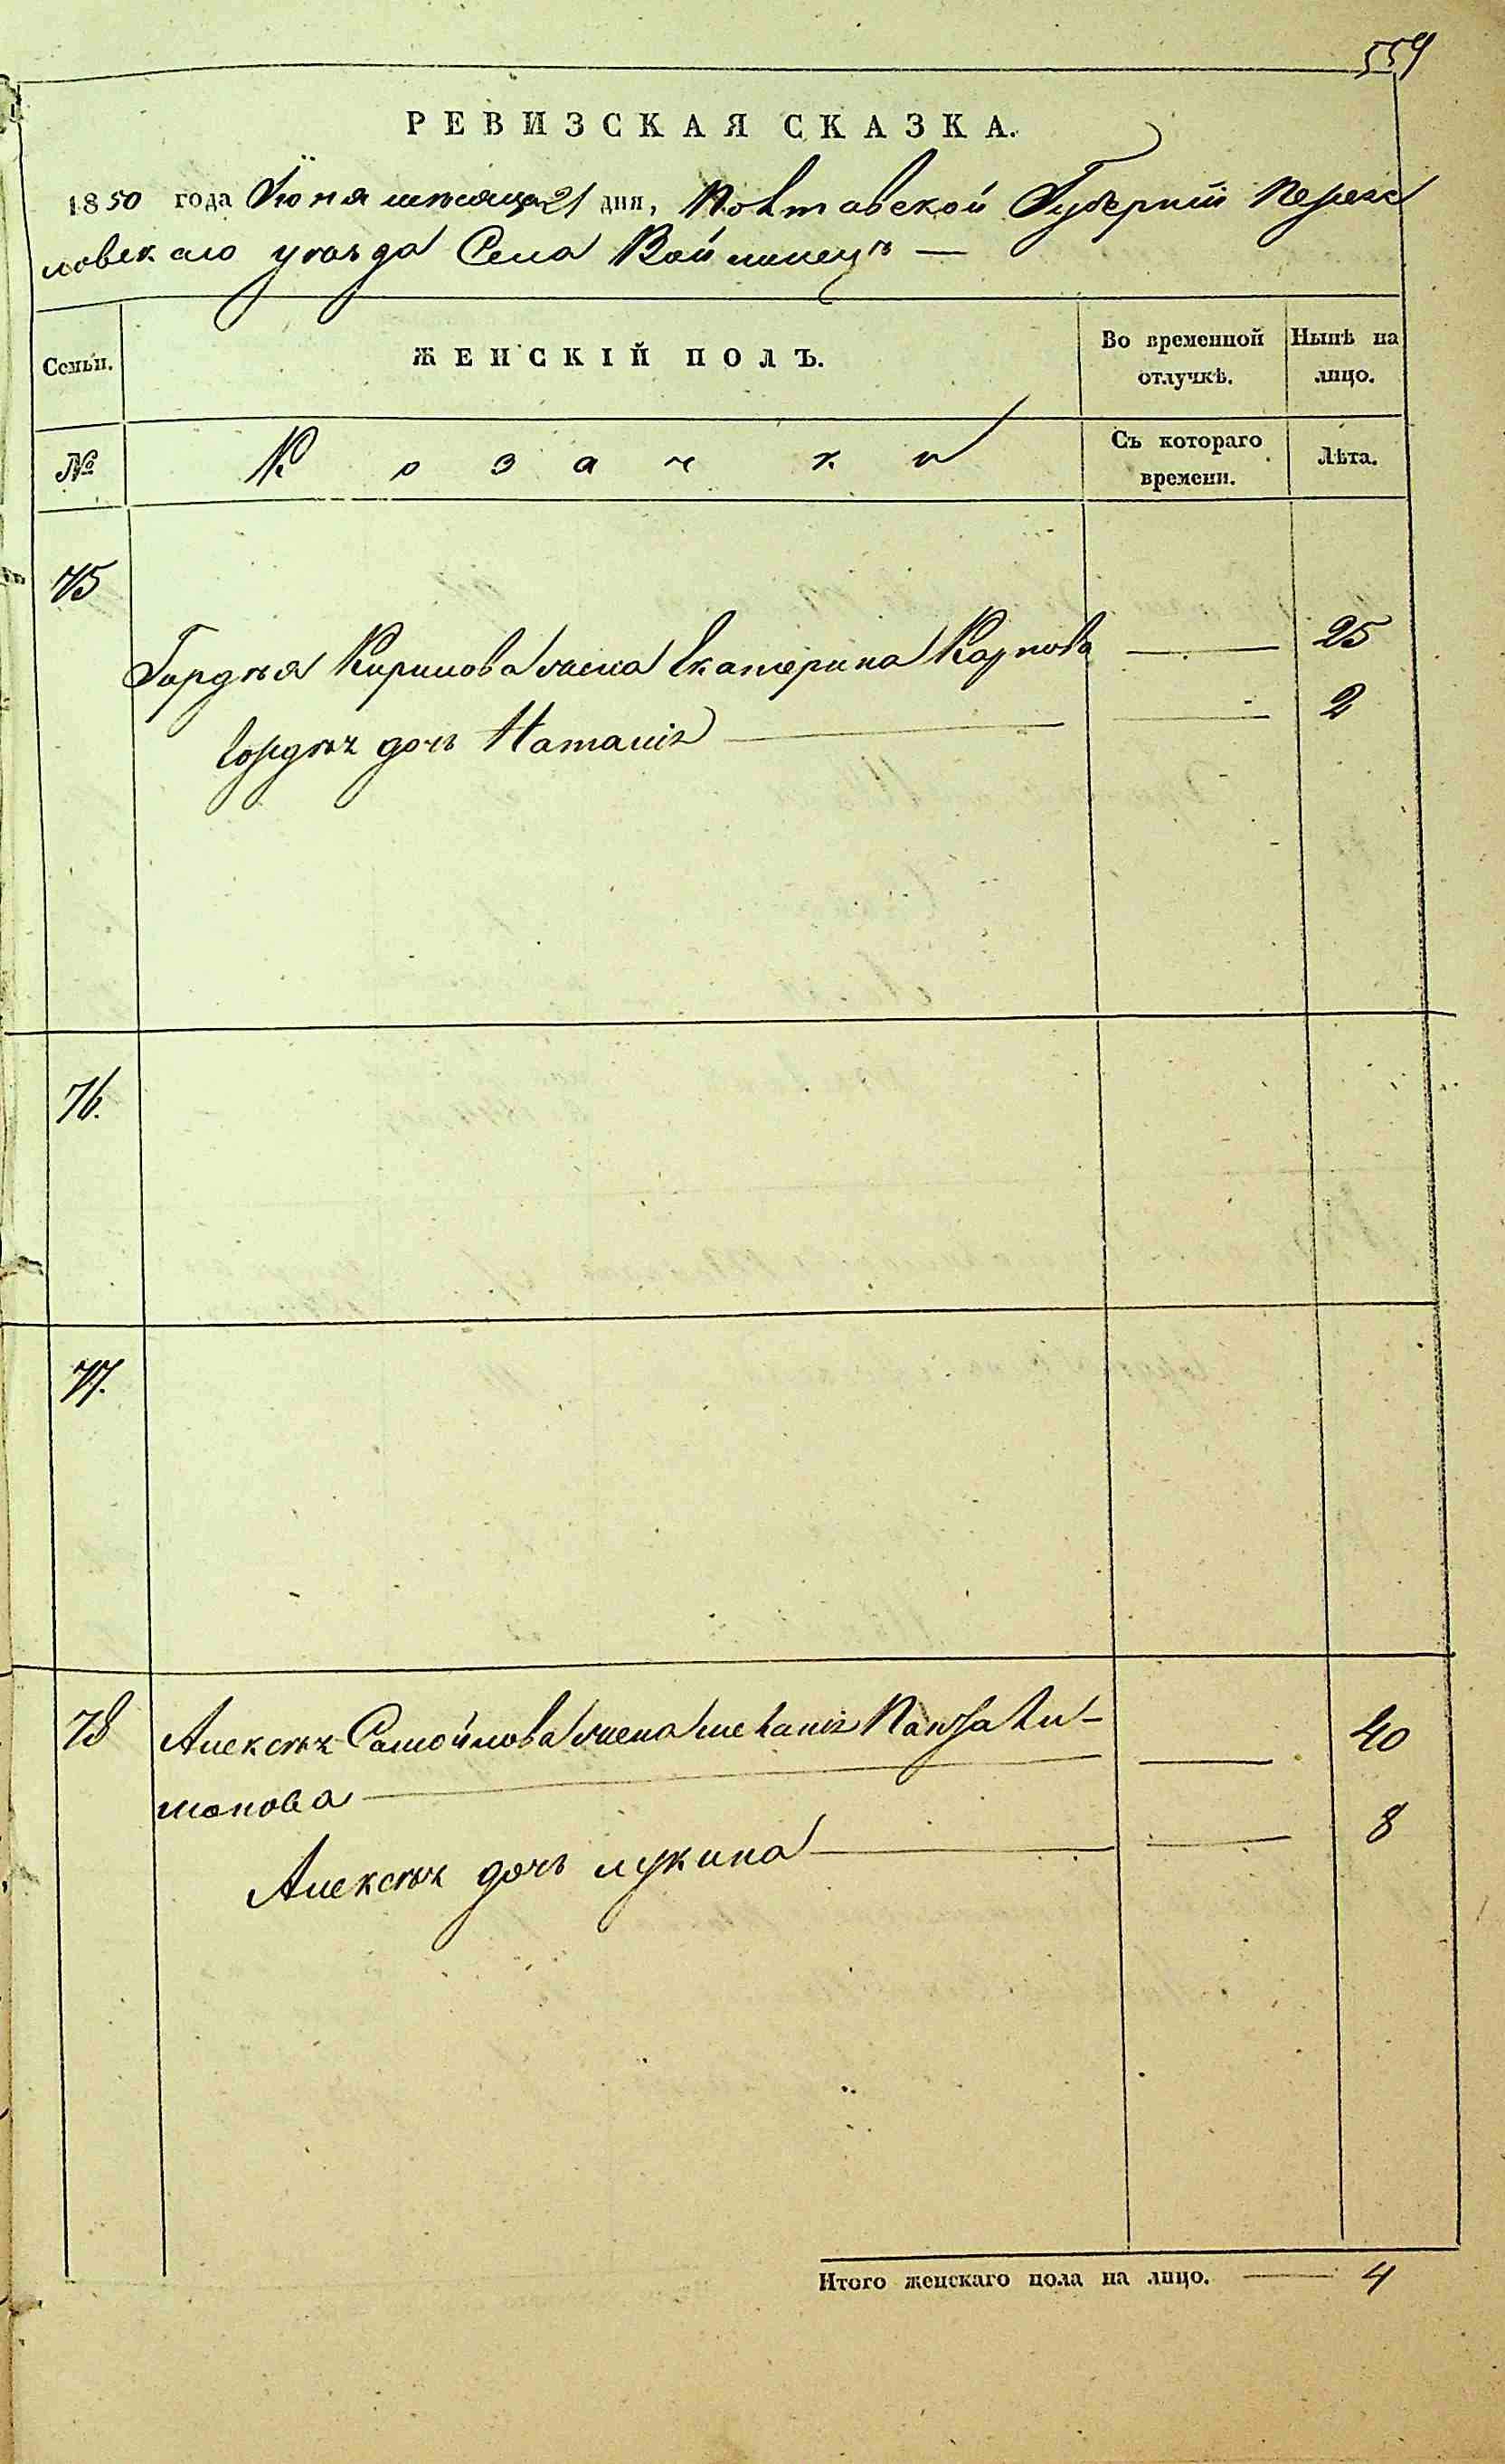 559
РЕВИЗСКАЯ СКАЗКА.
1850 года Іюня месяца 21 дня, Полтавской Губерніи Переяс
ловскаго уезда Села Войтовецъ —
Семьи. ЖЕНСКІЙ ПОЛЪ. Во временной отлучкѣ. Нынѣ на лицо.
№ Козачки Съ котораго времени. Лѣта.
75
Гордѣя Кирилова жена Екатерина Карпова 25
Гордѣя дочь Наталія 2
76.
77.
78 Алексѣя Самойлова жена Меланія 40
Алексѣя дочь 8
Итого женскаго пола на лицо. 4